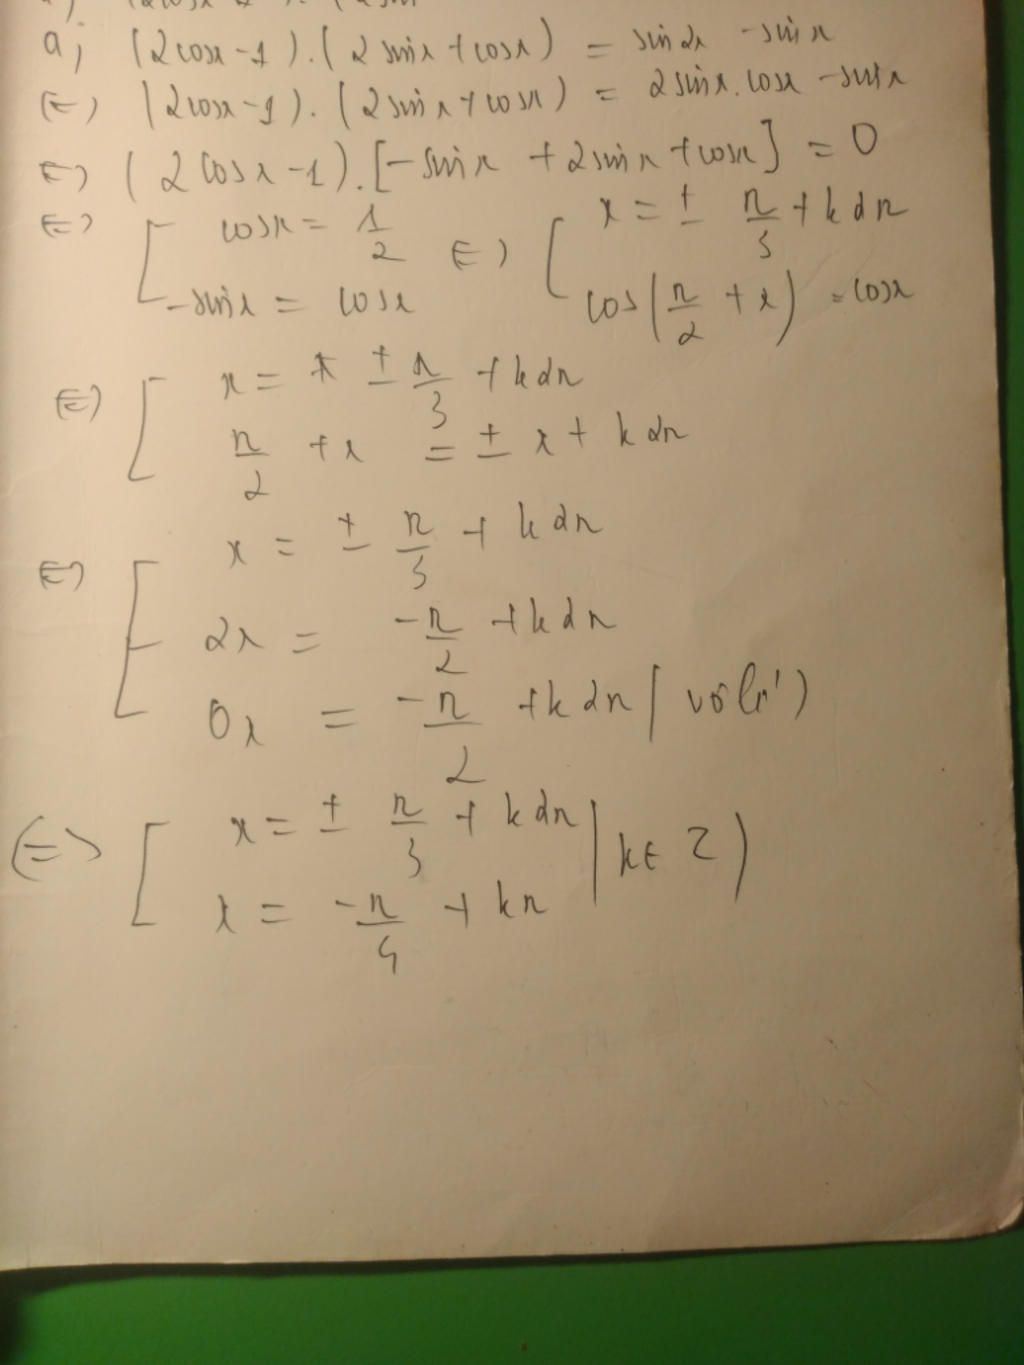 a; (2cosx-1).(2sinx+cosx) = sin2x - sinx
(=) (2cosx-1).(2sinx+cosx) = 2sinx.cosx - sinx
(=) (2cosx-1).[-sinx + 2sinx + cosx] = 0
(=) [ cosx = 1/2 (=) [ x = ± π/3 + k2π
-sinx = cosx cos(π/2 + x) = cosx
(=) [ x = ± π/3 + k2π
π/2 + x = ± x + k2π
(=) [ x = ± π/3 + k2π
2x = -π/2 + k2π
0x = -π/2 + k2π (vô lí)
(=) [ x = ± π/3 + k2π (k∈Z)
x = -π/4 + kπ